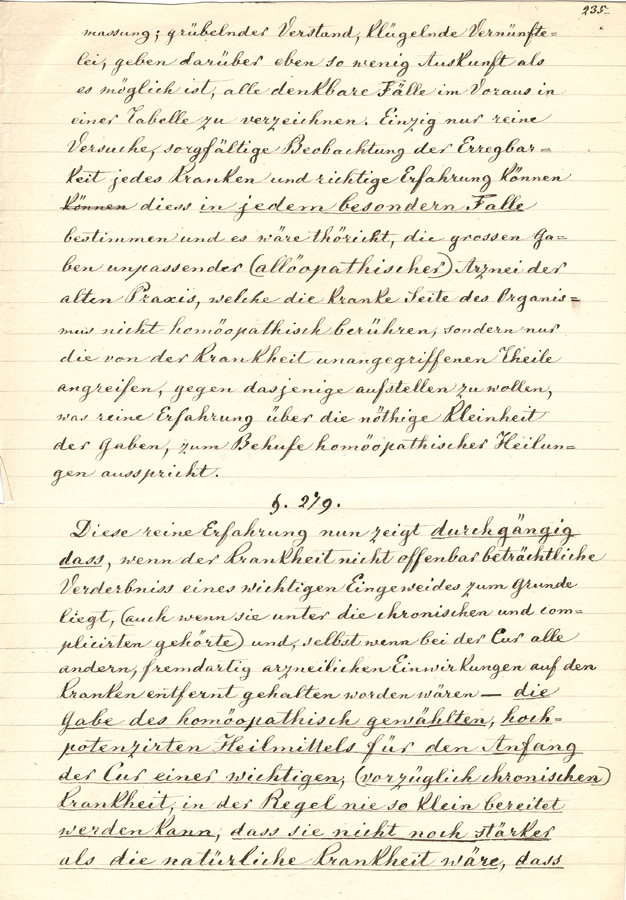 235.
massung; grübelnder Verstand, klügelnde Vernünfte=
lei, geben darüber eben so wenig Auskunft als
es möglich ist, alle denkbare Fälle im Voraus in
einer Tabelle zu verzeichnen. Einzig nur reine
Versuche, sorgfältige Beobachtung der Erregbar=
keit jedes Kranken und richtige Erfahrung können
können diess in jedem besondern Falle
bestimmen und es wäre thöricht, die grossen Ga=
ben unpassender (allöopathischer) Arznei der
alten Praxis, welche die kranke Seite des Organis=
mus nicht homöopathisch berühren, sondern nur
die von der Krankheit unangegriffenen Theile
angreifen, gegen dasjenige aufstellen zu wollen,
was reine Erfahrung über die nöthige Kleinheit
der Gaben, zum Behufe homöopathischer Heilun=
gen ausspricht.
§. 279.
Diese reine Erfahrung nun zeigt durchgängig
dass, wenn der Krankheit nicht offenbar beträchtliche
Verderbniss eines wichtigen Eingeweides zum Grunde
liegt, (auch wenn sie unter die chronischen und com=
plicirten gehörte) und, selbst wenn bei der Cur alle
andern, fremdartig arzneilichen Einwirkungen auf den
Kranken entfernt gehalten worden wären — die
Gabe des homöopathisch gewählten, hoch=
potenzirten Heilmittels für den Anfang
der Cur einer wichtigen, (vorzüglich chronischen)
Krankheit, in der Regel nie so klein bereitet
werden kann, dass sie nicht noch stärker
als die natürliche Krankheit wäre, dass